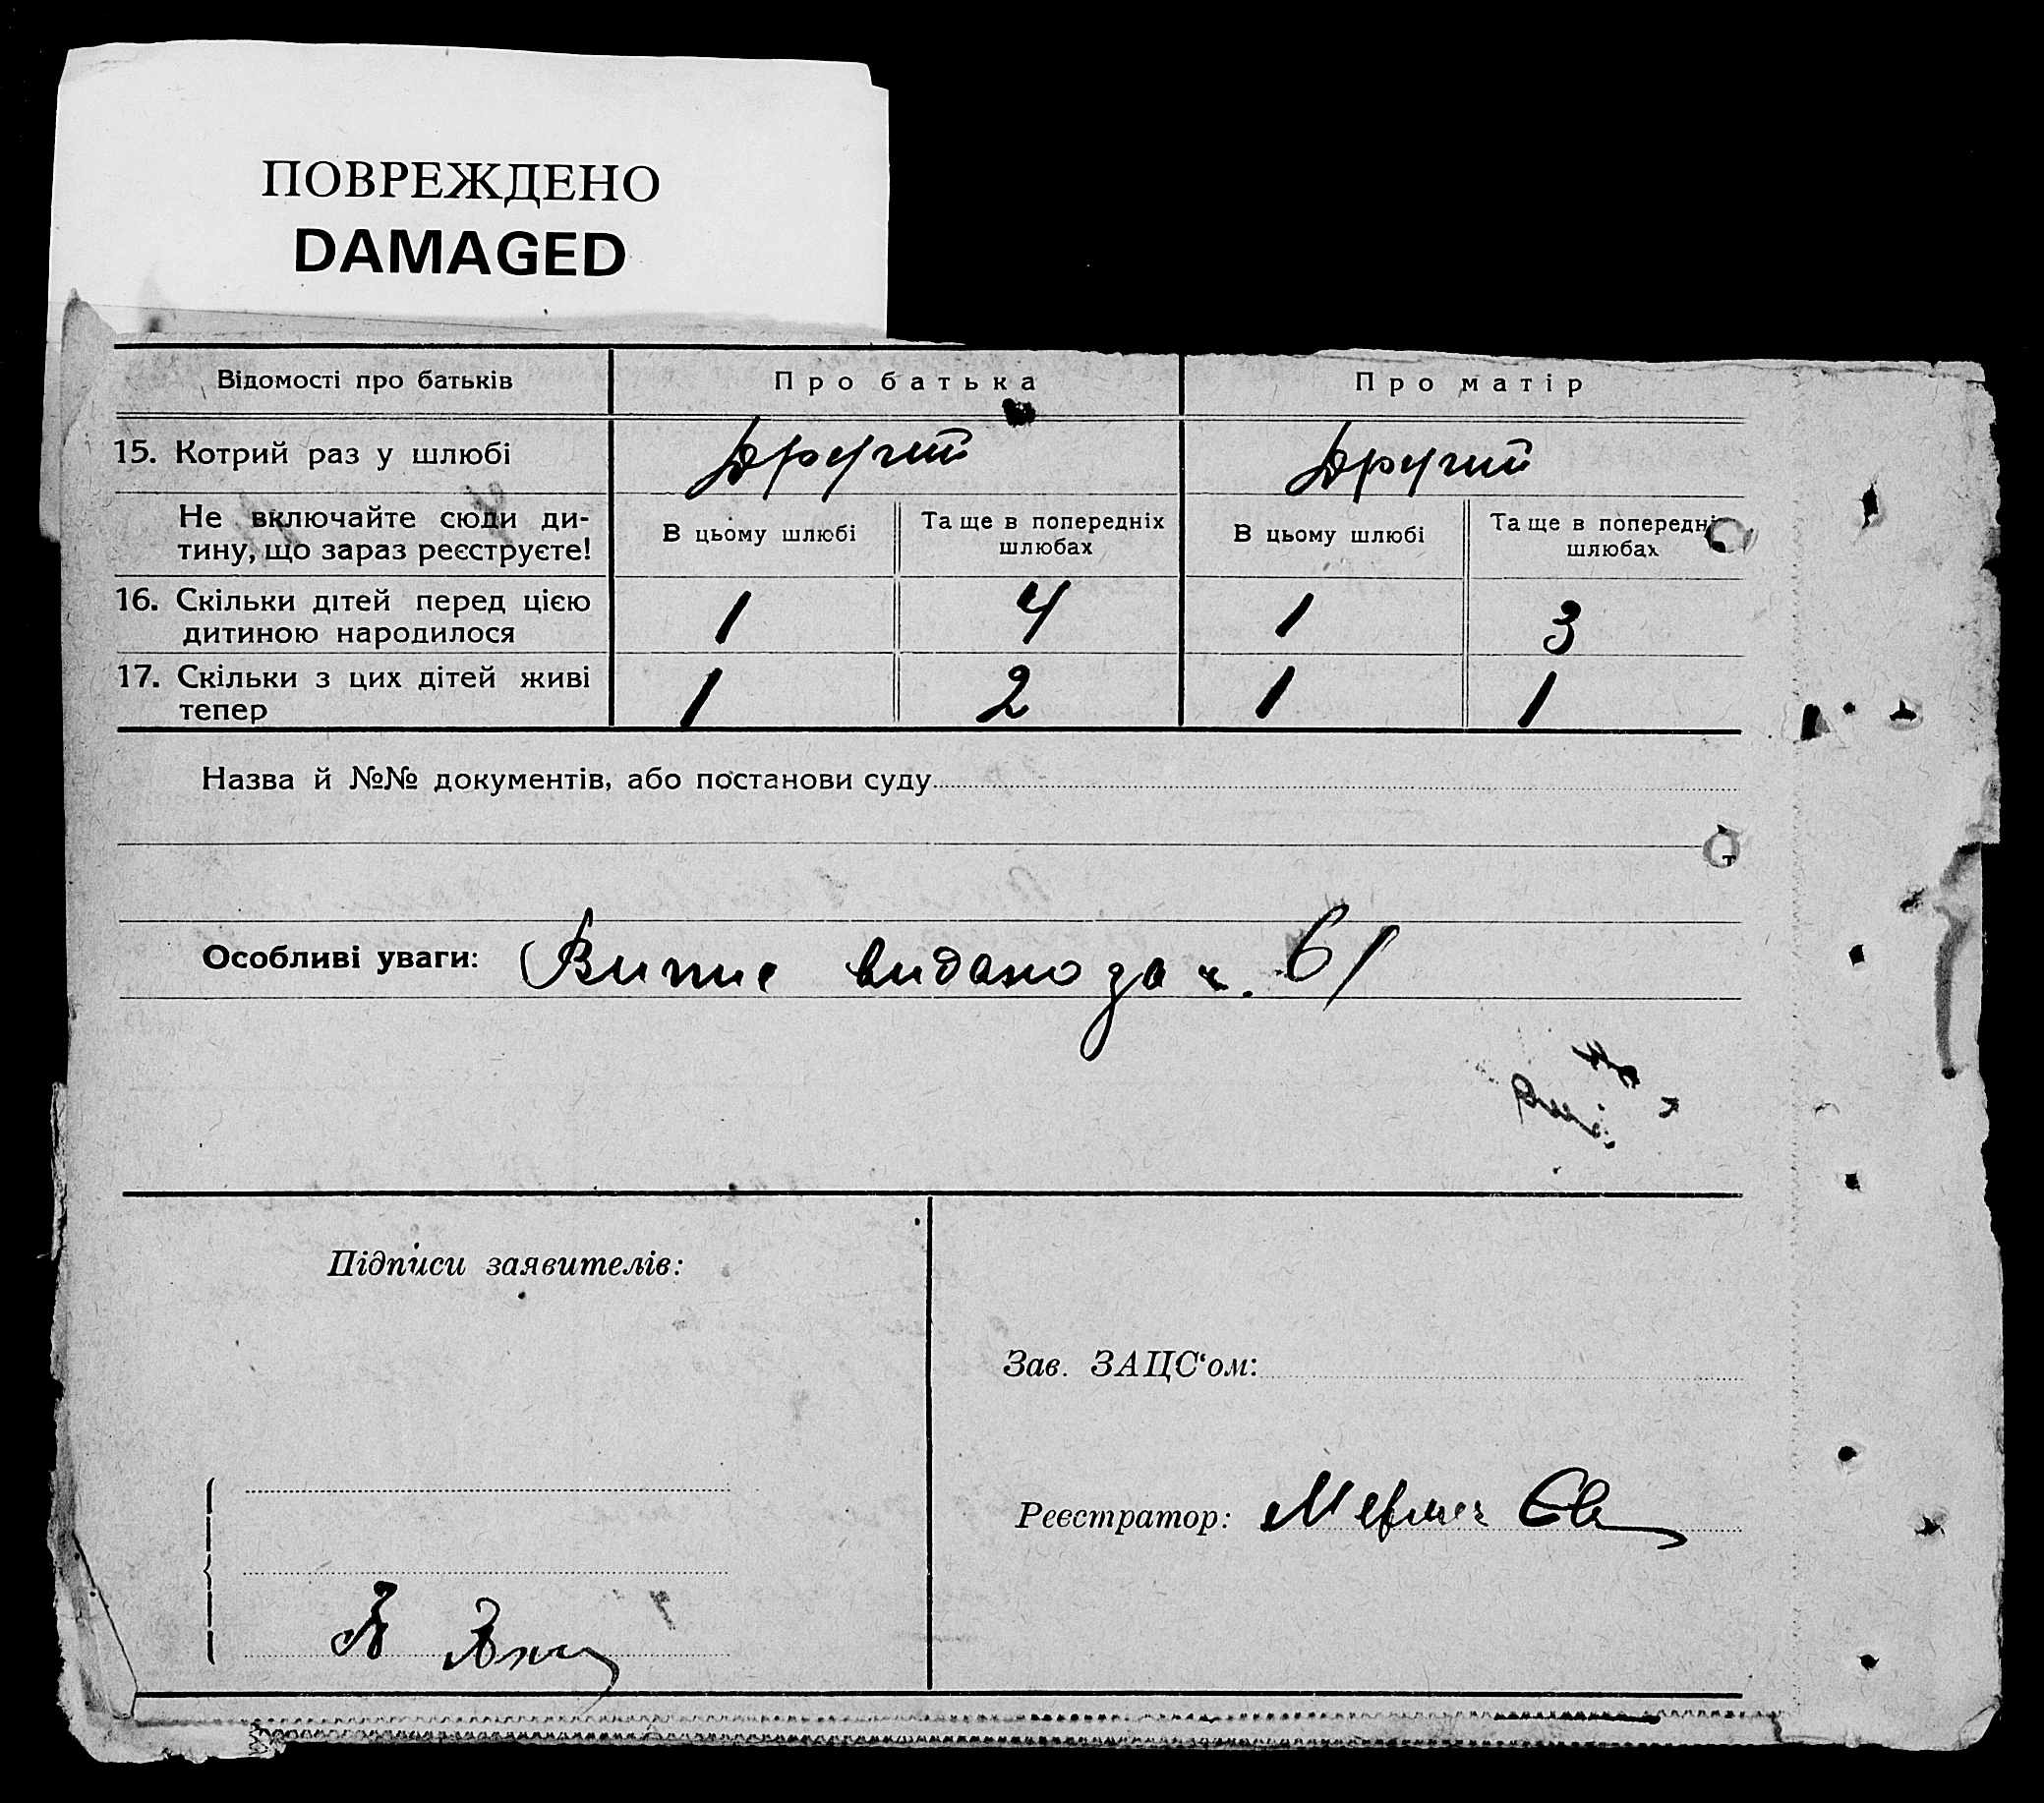 ПОВРЕЖДЕНО
DAMAGED
Відомості про батьків Про батька Про матір
15. Котрий раз у шлюбі Другий Другий
Не включайте сюди ди-
тину, що зараз реєструєте!
В цьому шлюбі Та ще в попередніх шлюбах В цьому шлюбі Та ще в попередні шлюбах
16. Скільки дітей перед цією
дитиною народилося 1 4 1 3
17. Скільки з цих дітей живі
тепер 1 2 1 1
Назва й №№ документів, або постанови суду
Особливі уваги: Випис видано за ч. 61
Підписи заявителів:
Зав. ЗАЦС‘ом:
Реєстратор: